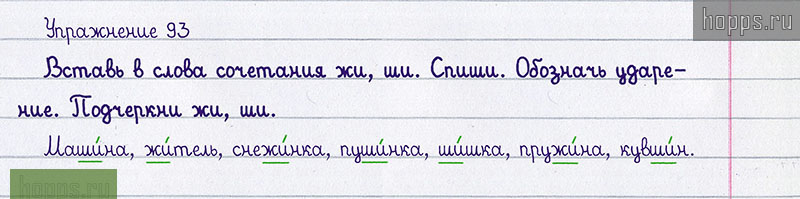 Упражнение 93
hopps.ru
Вставь в слова сочетания жи, ши. Спиши. Обозначь ударе-
ние. Подчеркни жи, ши.
Маши́на, жи́тель, снежи́нка, пуши́нка, ши́шка, пружи́на, кувши́н.
hopps.ru